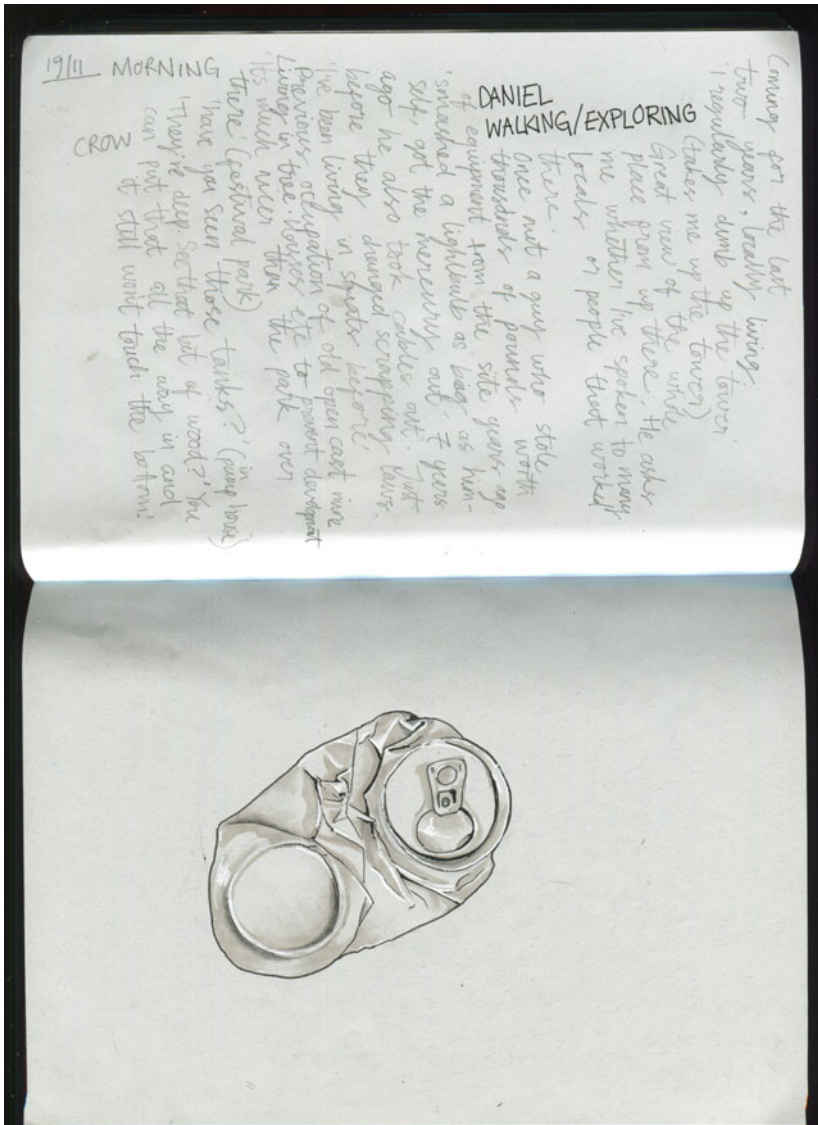 19/11 MORNING
CROW
DANIEL
WALKING/EXPLORING
Coming for the last
two years, locally living
'I regularly climb up the tower.
(takes me up the tower)
Great view of the whole
place from up there. He asks
me whether I've spoken to many
locals or people that worked
there.
Once met a guy who stole
thousands of pounds worth
of equipment from the site years ago.
'smashed a lightbulb as big as him-
self, got the mercury out. 7 years
ago he also took cables out. Just
before they changed scrapping laws.
'I've been living in squats before,
Previous occupation of old open cast mine
Living in tree houses etc to prevent development
'It's much nicer than the park over
there (festival park)
'have you seen those tanks?' (in pump house)
'They're deep. See that bit of wood?' You
can put that all the way in and
it still wont touch the bottom!